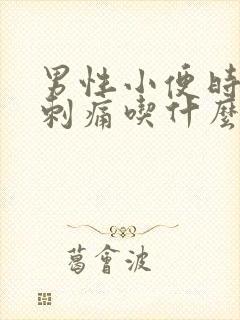 男性小便時
刺痛喫什麼
葛會波